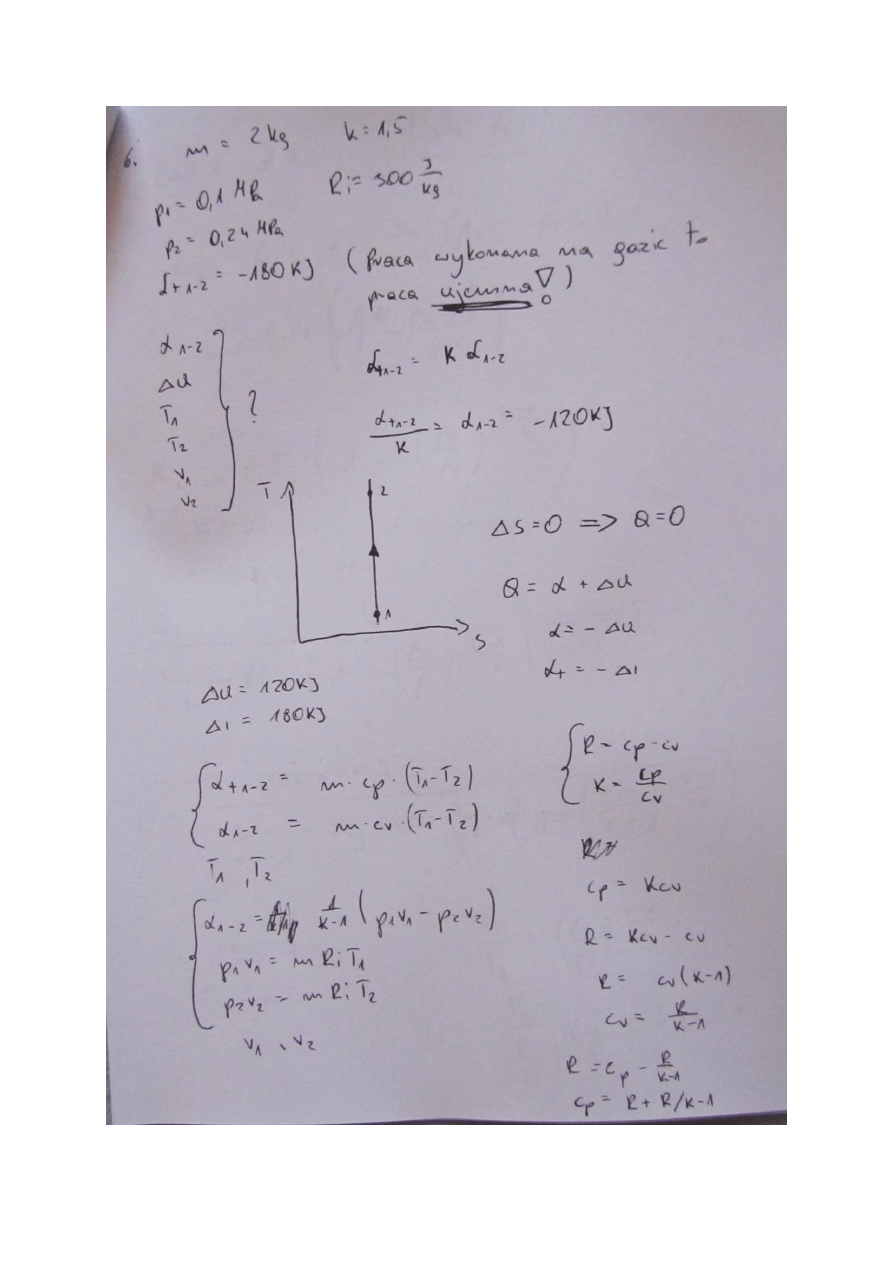 6. m = 2 kg k = 1,5
p1 = 0,1 MPa Ri = 300 J/kg
p2 = 0,24 MPa
Lt 1-2 = -180 KJ (praca wykonana na gazie to
praca ujemna!)
L 1-2
ΔU
T1
T2
V1
V2
?
Lt1-2 = K L1-2
Lt1-2/K = L1-2 = -120KJ
T 2
1 S
ΔS=0 => Q=0
Q = L + ΔU
L = - ΔU
Lt = - ΔI
ΔU = 120KJ
ΔI = 180KJ
Lt 1-2 = m · cp · (T1-T2)
L1-2 = m · cv · (T1-T2)
T1 , T2
L1-2 = 1/(K-1) (p1V1 - p2V2)
p1V1 = m Ri T1
p2V2 = m Ri T2
V1 , V2
R = cp - cv
K = cp/cv
cp = Kcv
R = Kcv - cv
R = cv(K-1)
cv = R/(K-1)
R = cp - R/(K-1)
cp = R + R/K-1